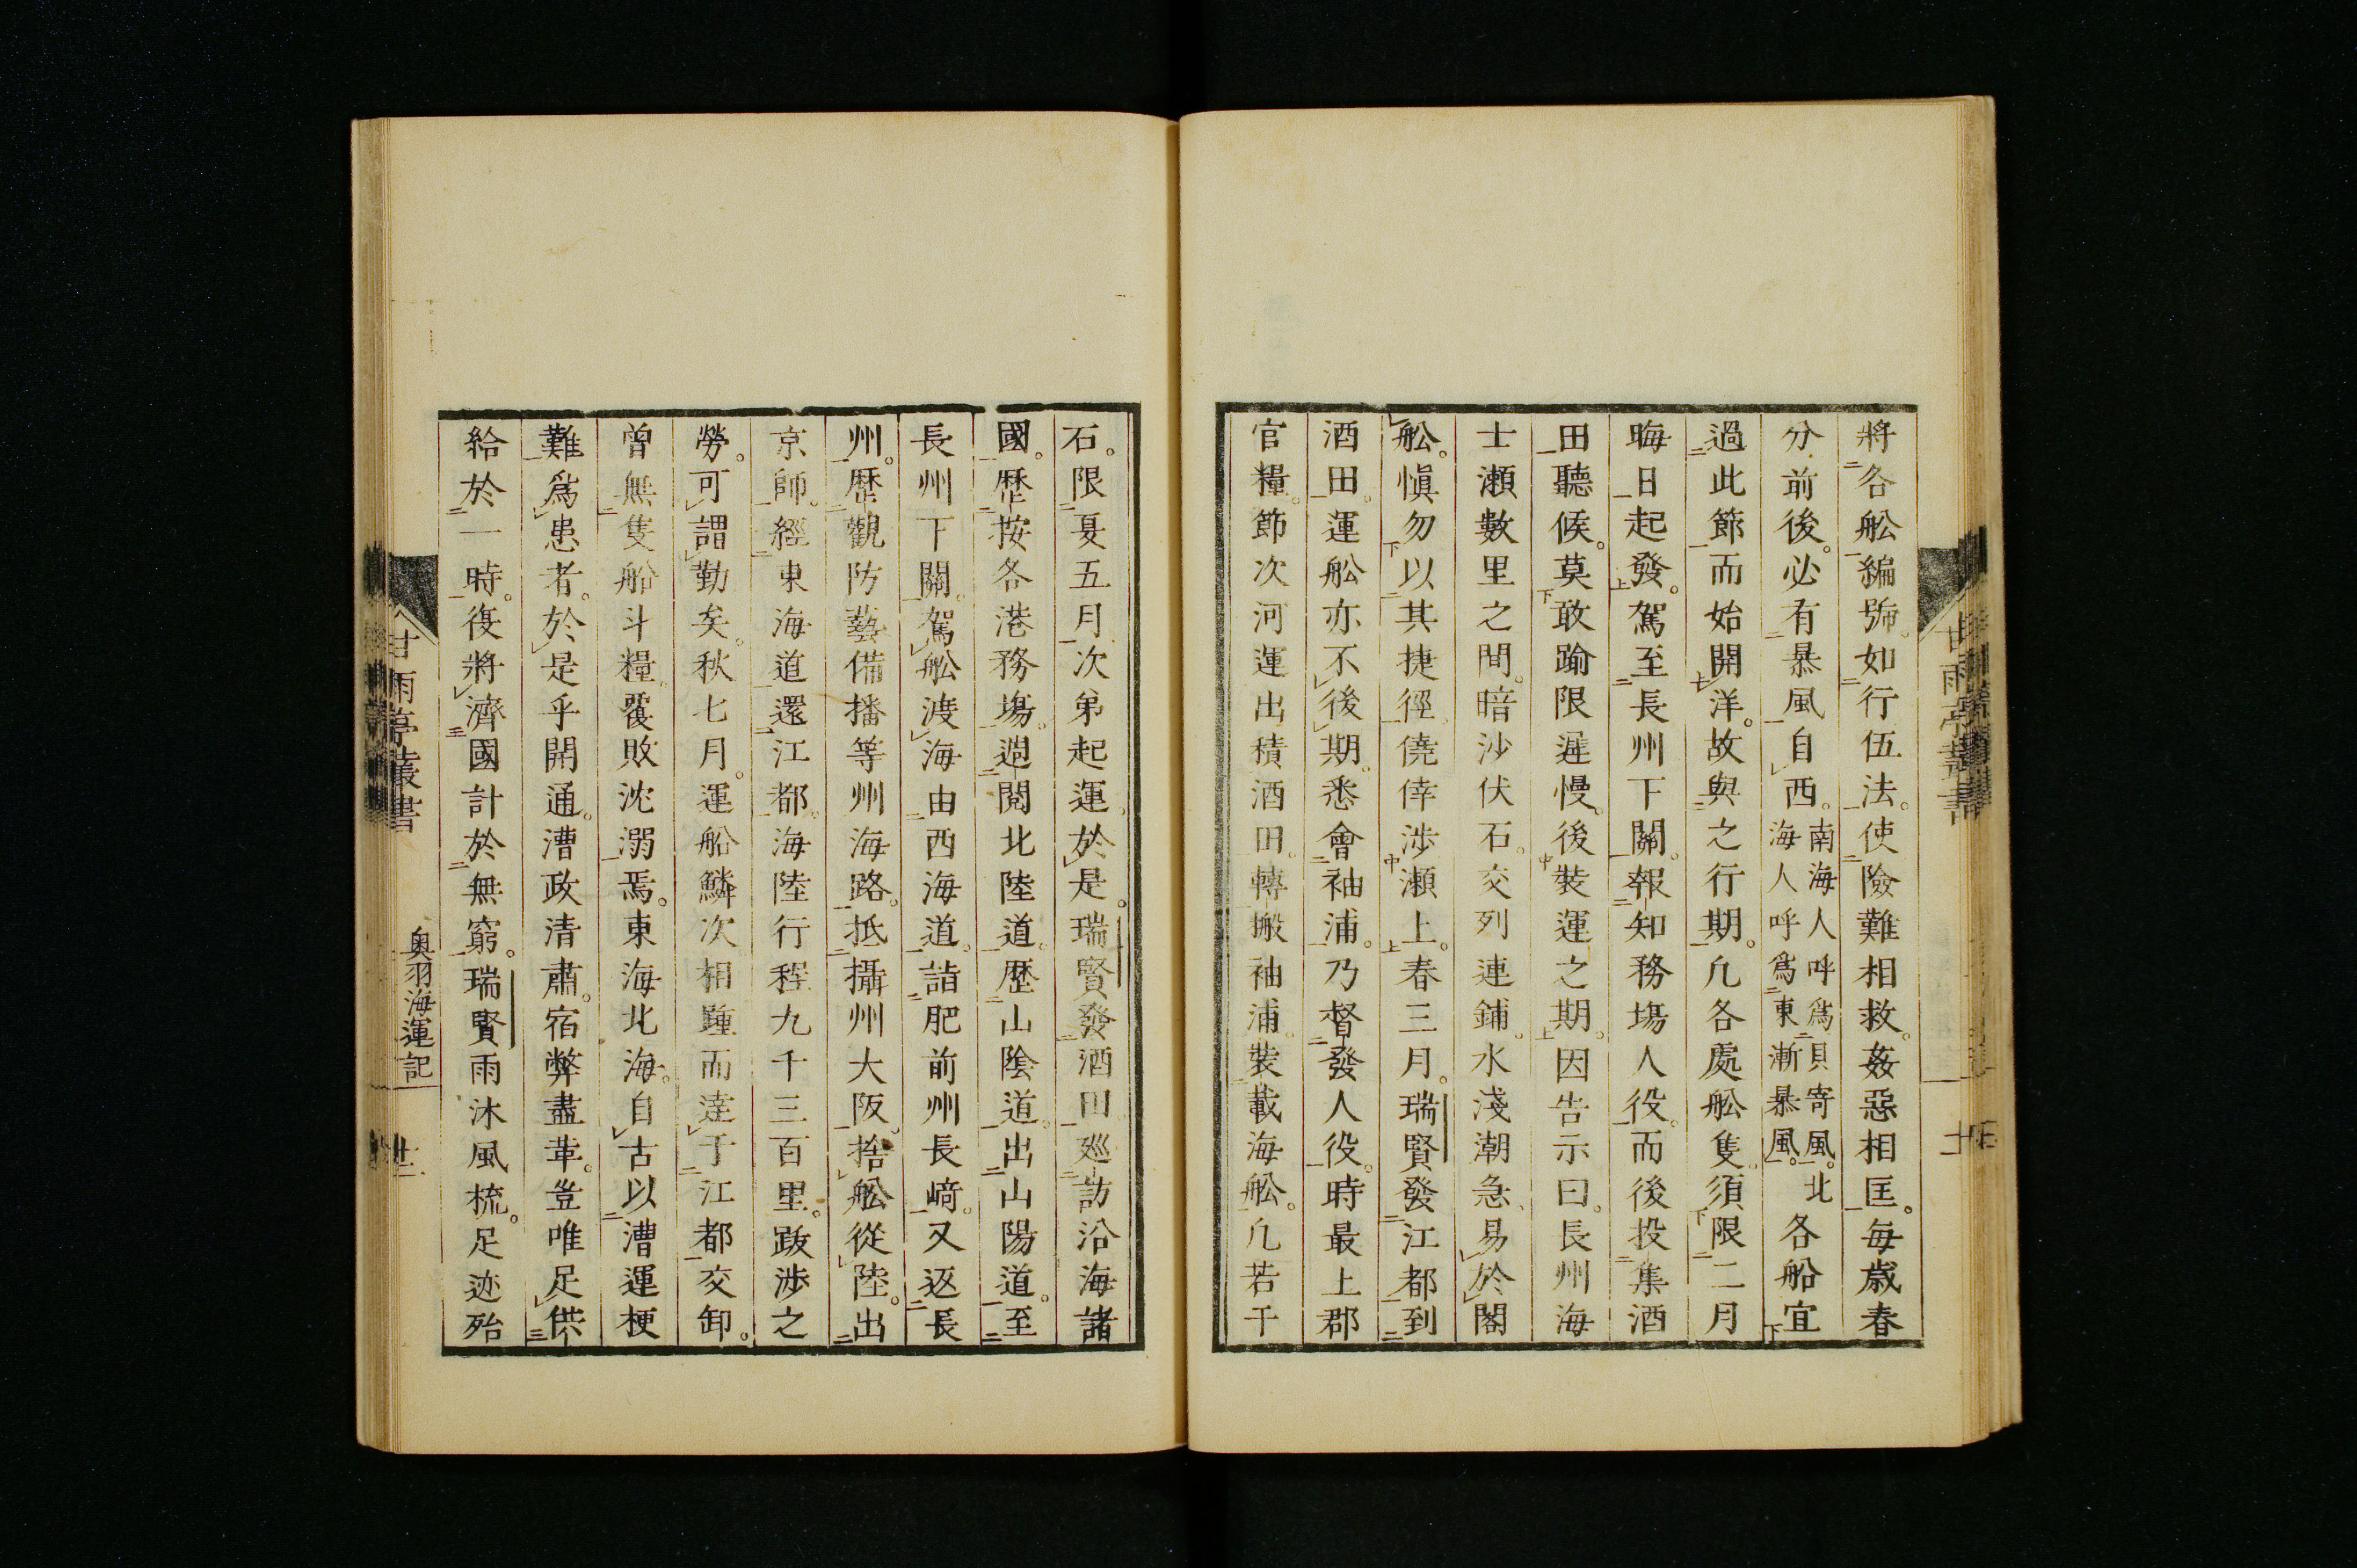 將各舩編號。如行伍法。使險難相救。姦惡相匡。毎歳春
分前後。必有暴風自西。南海人呼爲貝寄風。北海人呼爲東漸暴風。各船宜
過此節而始開洋。故與之行期。凡各處舩隻。須限二月
晦日起發。駕至長州下關。報知務塲人役。而後投集酒
田聽候。莫敢踰限遲慢。後裝運之期。因告示曰。長州海
士瀬數里之間。暗沙伏石。交列連鋪。水淺潮急。易於閣
舩。愼勿以其捷徑。僥倖渉瀬上。春三月。瑞賢發江都到
酒田。運舩亦不後期。悉會袖浦。乃督發人役。時最上郡
官糧。節次河運出積酒田。轉搬袖浦。裝載海舩。凡若干
石。限夏五月次弟起運。於是。瑞賢發酒田廵訪沿海諸
國。歴按各港務塲。過閲北陸道。歴山陰道。出山陽道。至
長州下關。駕舩渡海由西海道。詣肥前州長﨑。又返長
州。歴觀防藝備播等州海路。抵攝州大阪。捨舩從陸。出
京師。經東海道還江都。海陸行程九千三百里。跋渉之
勞。可謂勤矣。秋七月。運船鱗次相踵而達于江都交卸。
曾無隻船斗糧。覆敗沈溺焉。東海北海。自古以漕運梗
難爲患者。於是乎開通。漕政清肅。宿弊盡革。豈唯足供
給於一時。復將濟國計於無窮。瑞賢雨沐風梳。足迹殆
甘雨亭叢書
奥羽海運記
甘雨亭叢書